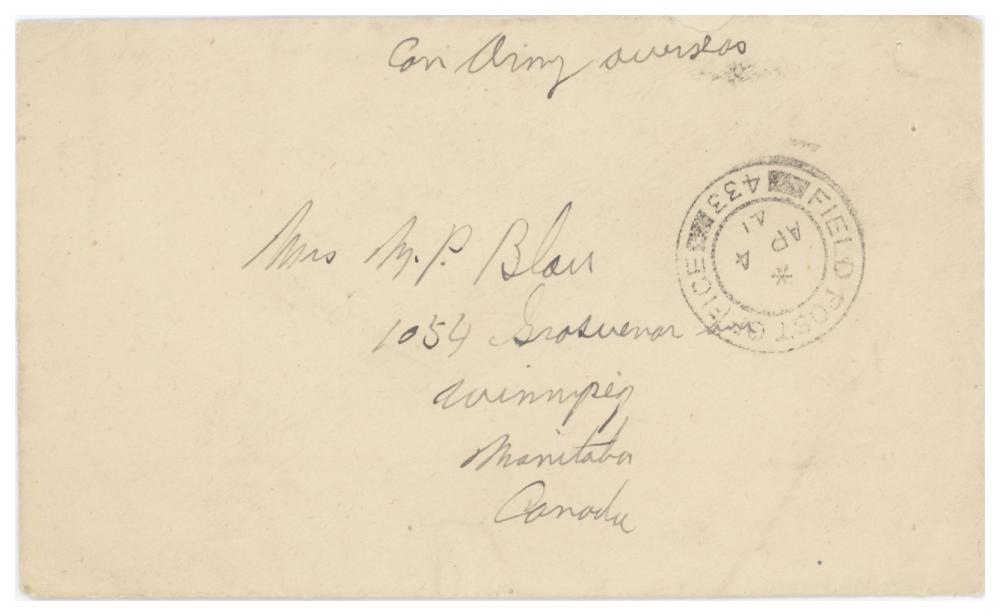 Can Army overseas
FIELD POST OFFICE 433
*
4
AP
41
Mrs M. P. Blair
1054 Grosvenor Ave
Winnipeg
Manitoba
Canada